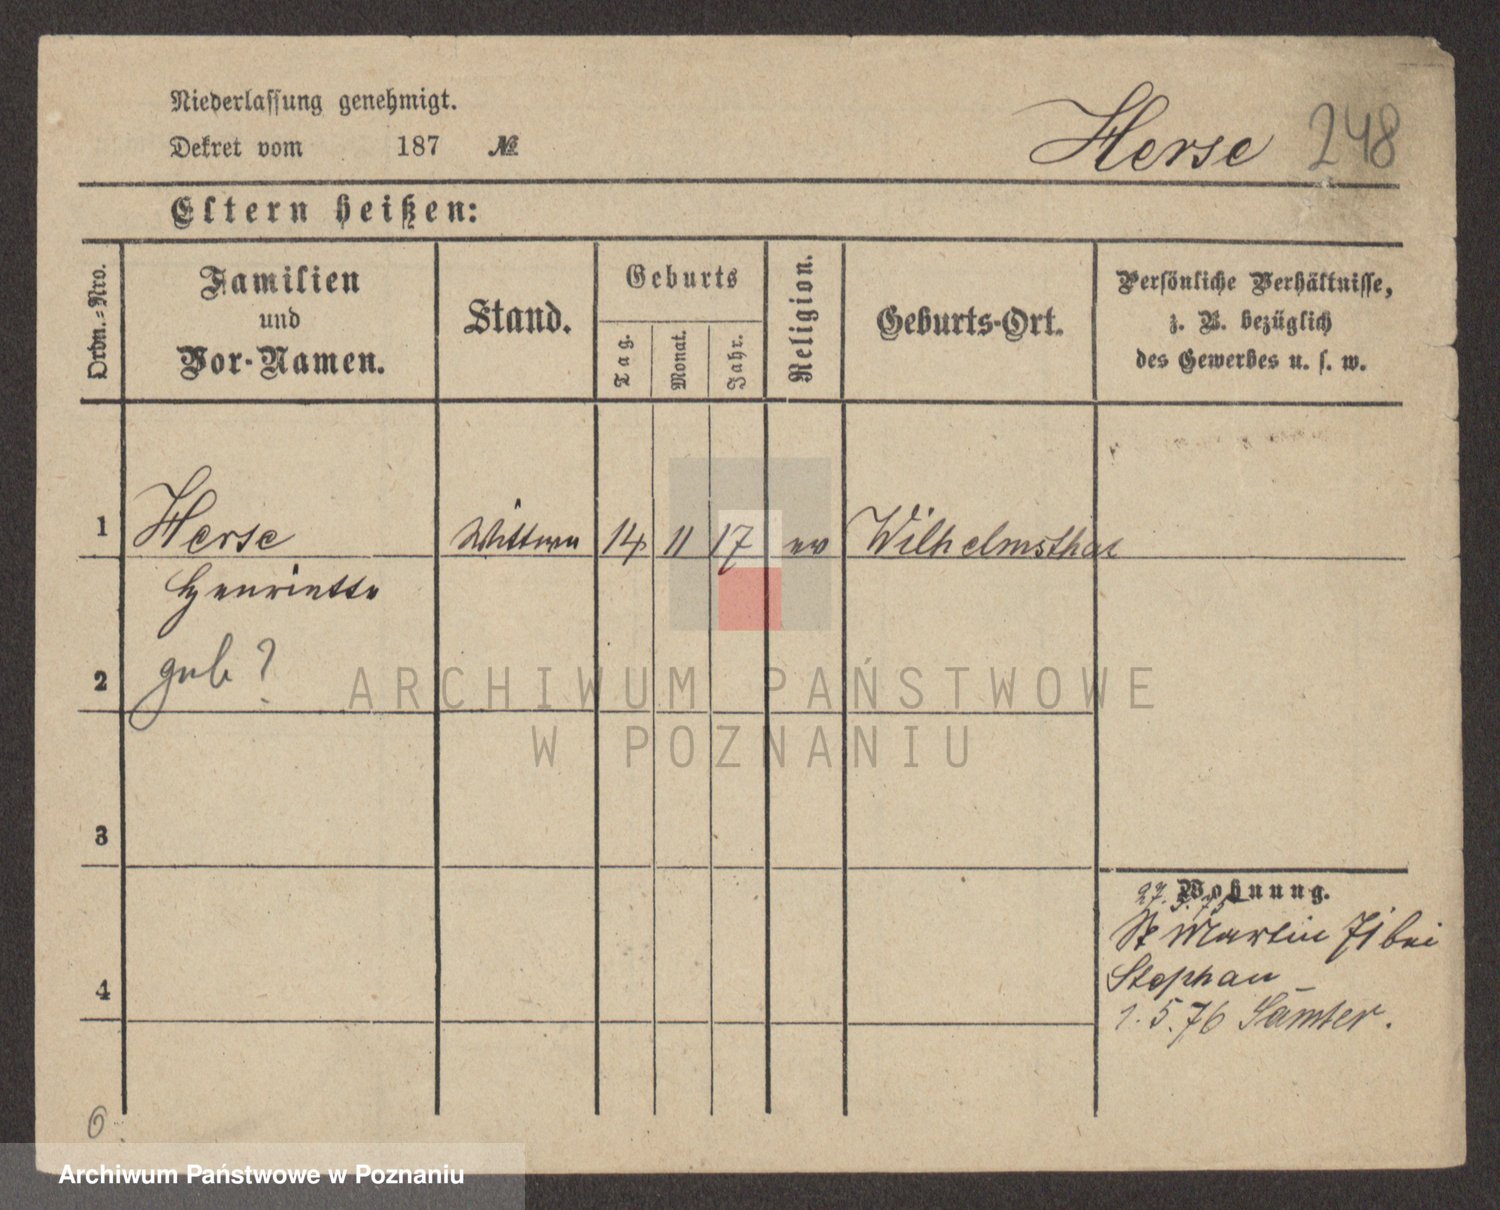 Niederlassung genehmigt.
Dekret vom 187 №
Herse 248
Eltern heißen:
Ordn.-Nro.
Familien
und
Vor-Namen.
Stand.
Geburts
Tag.
Monat.
Jahr.
Religion.
Geburts-Ort.
Persönliche Verhältnisse,
z. B. bezüglich
des Gewerbes u. s. w.
1 Herse Wittwe 14 11 17 ev Wilhelmsthal
Henriette
2 geb ?
ARCHIWUM PAŃSTWOWE
W POZNANIU
3
Wohnung.
27. 5. 75
St Martin 71 bei
Stephan
4
1. 5. 76 Samter.
Archiwum Państwowe w Poznaniu